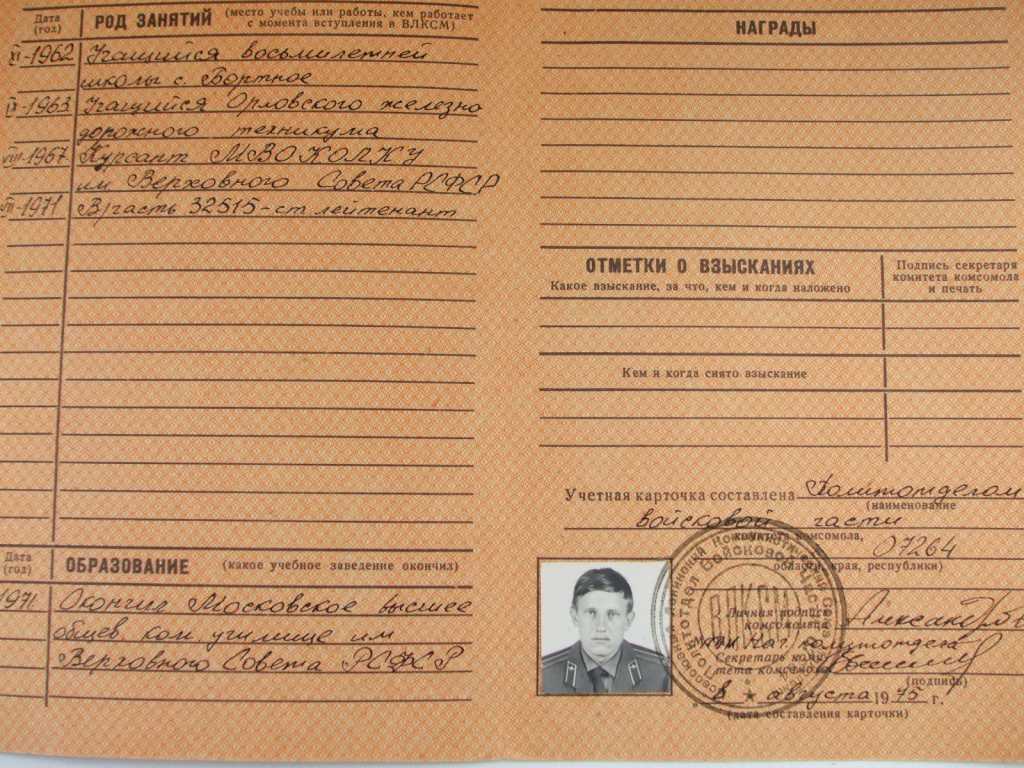 Дата (год)
РОД ЗАНЯТИЙ (место учебы или работы, кем работает с момента вступления в ВЛКСМ)
XI-1962 Учащийся восьмилетней
школы с. Бортное
IX-1963 Учащийся Орловского железно
дорожного техникума
VIII-1967 Курсант МВОКОЛКУ
им Верховного Совета РСФСР
1971 В/часть 32515 - ст лейтенант
Дата (год)
ОБРАЗОВАНИЕ (какое учебное заведение окончил)
1971 Окончил Московское высшее
общев. ком. училище им
Верховного Совета РСФСР
НАГРАДЫ
ОТМЕТКИ О ВЗЫСКАНИЯХ
Какое взыскание, за что, кем и когда наложено
Подпись секретаря
комитета комсомола
и печать
Кем и когда снято взыскание
Учетная карточка составлена Политотделом
(наименование
войсковой части
комитета комсомола,
07264
области, края, республики)
ВЛКСМ
Личная подпись
комсомольца
нач. политотдела
Секретарь коми-
тета комсомола
(подпись)
8 августа 1975 г.
(дата составления карточки)